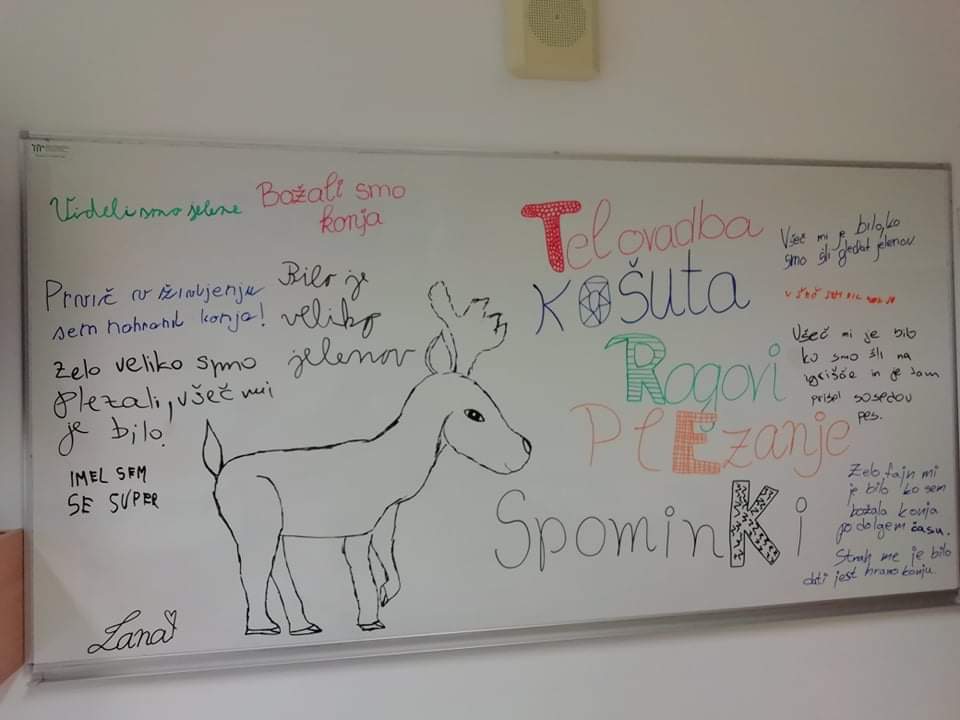 Videli smo jelene
Božali smo
konja
Prvič v življenju
sem nahranil konja!
Bilo je
veliko
jelenov
Zelo veliko smo
plezali, všeč mi
je bilo!
IMEL SEM
SE SUPER
Lana
Telovadba
KOŠuta
Rogovi
PlEzanje
SpominKi
Všeč mi je bilo, ko
smo šli gledat jelenov
Všeč mi je bilo
ko smo šli na
igrišče in je tam
prišel sosedov
pes.
Zelo fajn mi
je bilo ko sem
božala konja
po dolgem času.
Strah me je bilo
dati jest hrano konju.